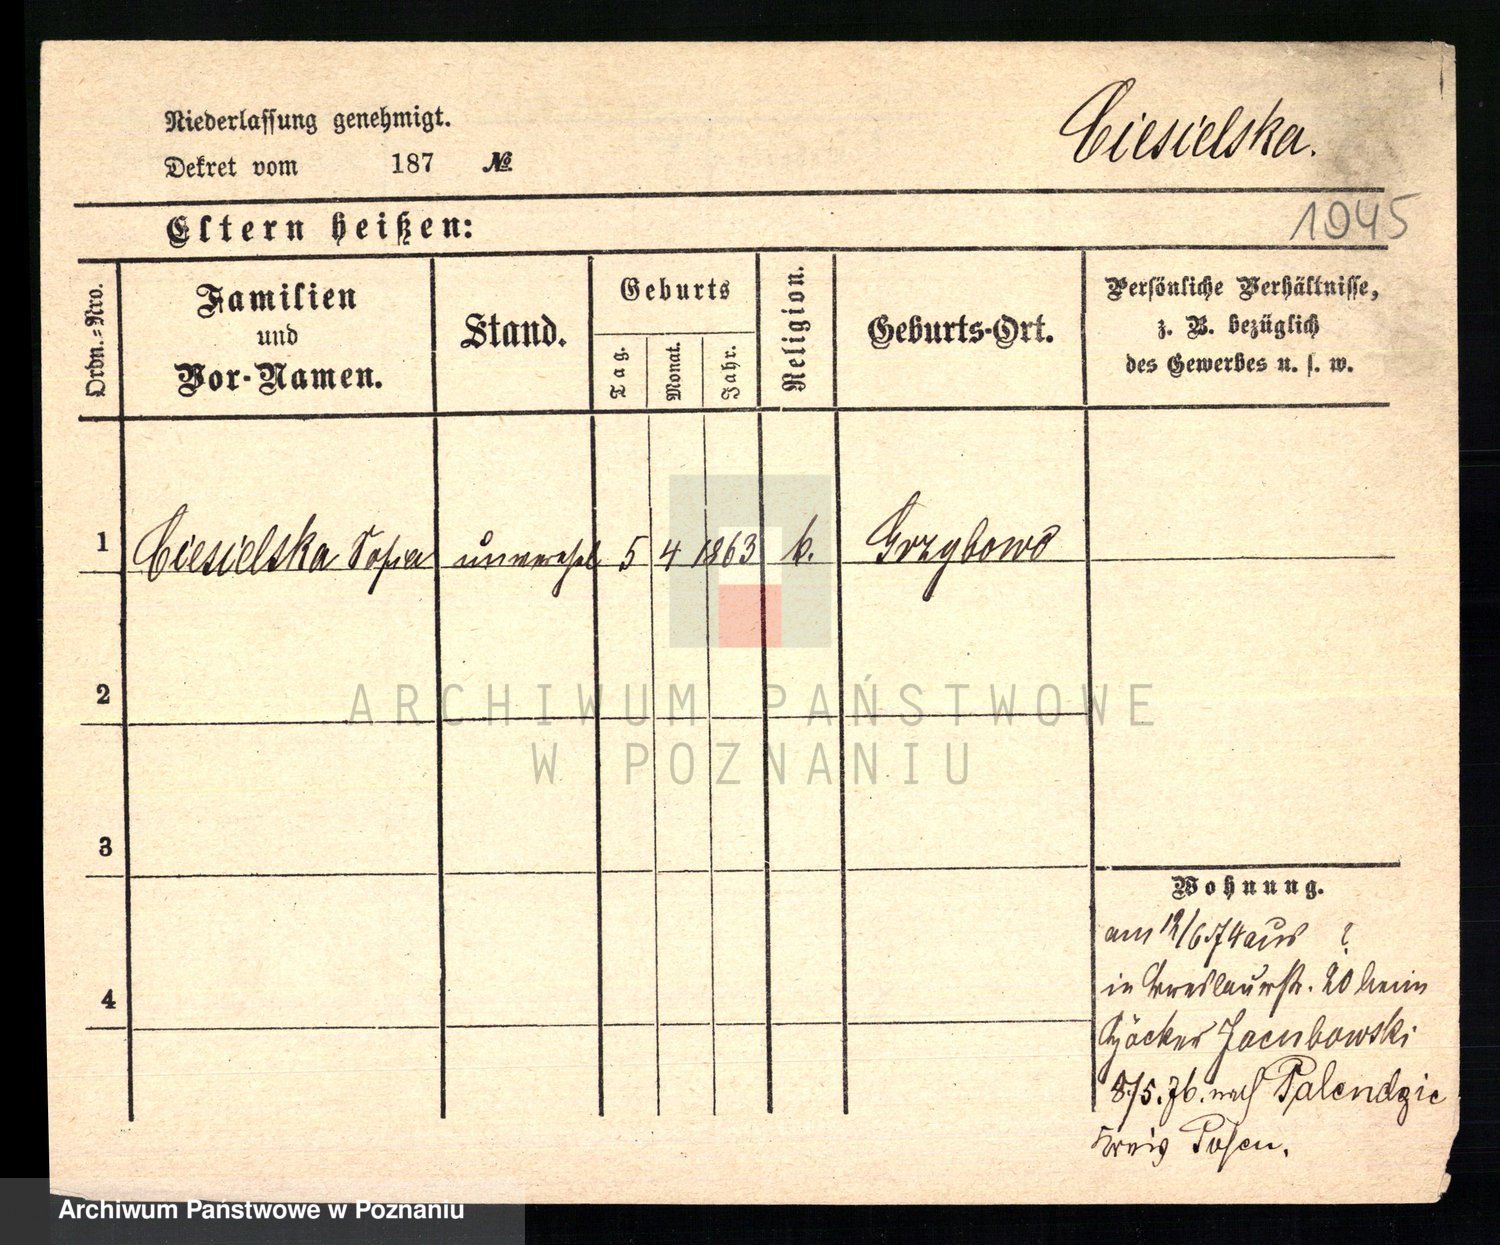 Niederlassung genehmigt.
Ciesielska.
Dekret vom 187 №
1945
Eltern heißen:
Ordn.-Nro.
Familien
und
Vor-Namen.
Stand.
Geburts
Tag.
Monat.
Jahr.
Religion.
Geburts-Ort.
Persönliche Verhältnisse,
z. B. bezüglich
des Gewerbes u. s. w.
1 Ciesielska Sofia unverehel 5 4 1863 k. Grzybowo
2
ARCHIWUM PAŃSTWOWE
W POZNANIU
3
4
Wohnung.
am 12/6.74 aus ?
in Breslauerstr. 20 beim
Bäcker Jacubowski
8/5.76. nach Palendzie
Kreis Posen.
Archiwum Państwowe w Poznaniu